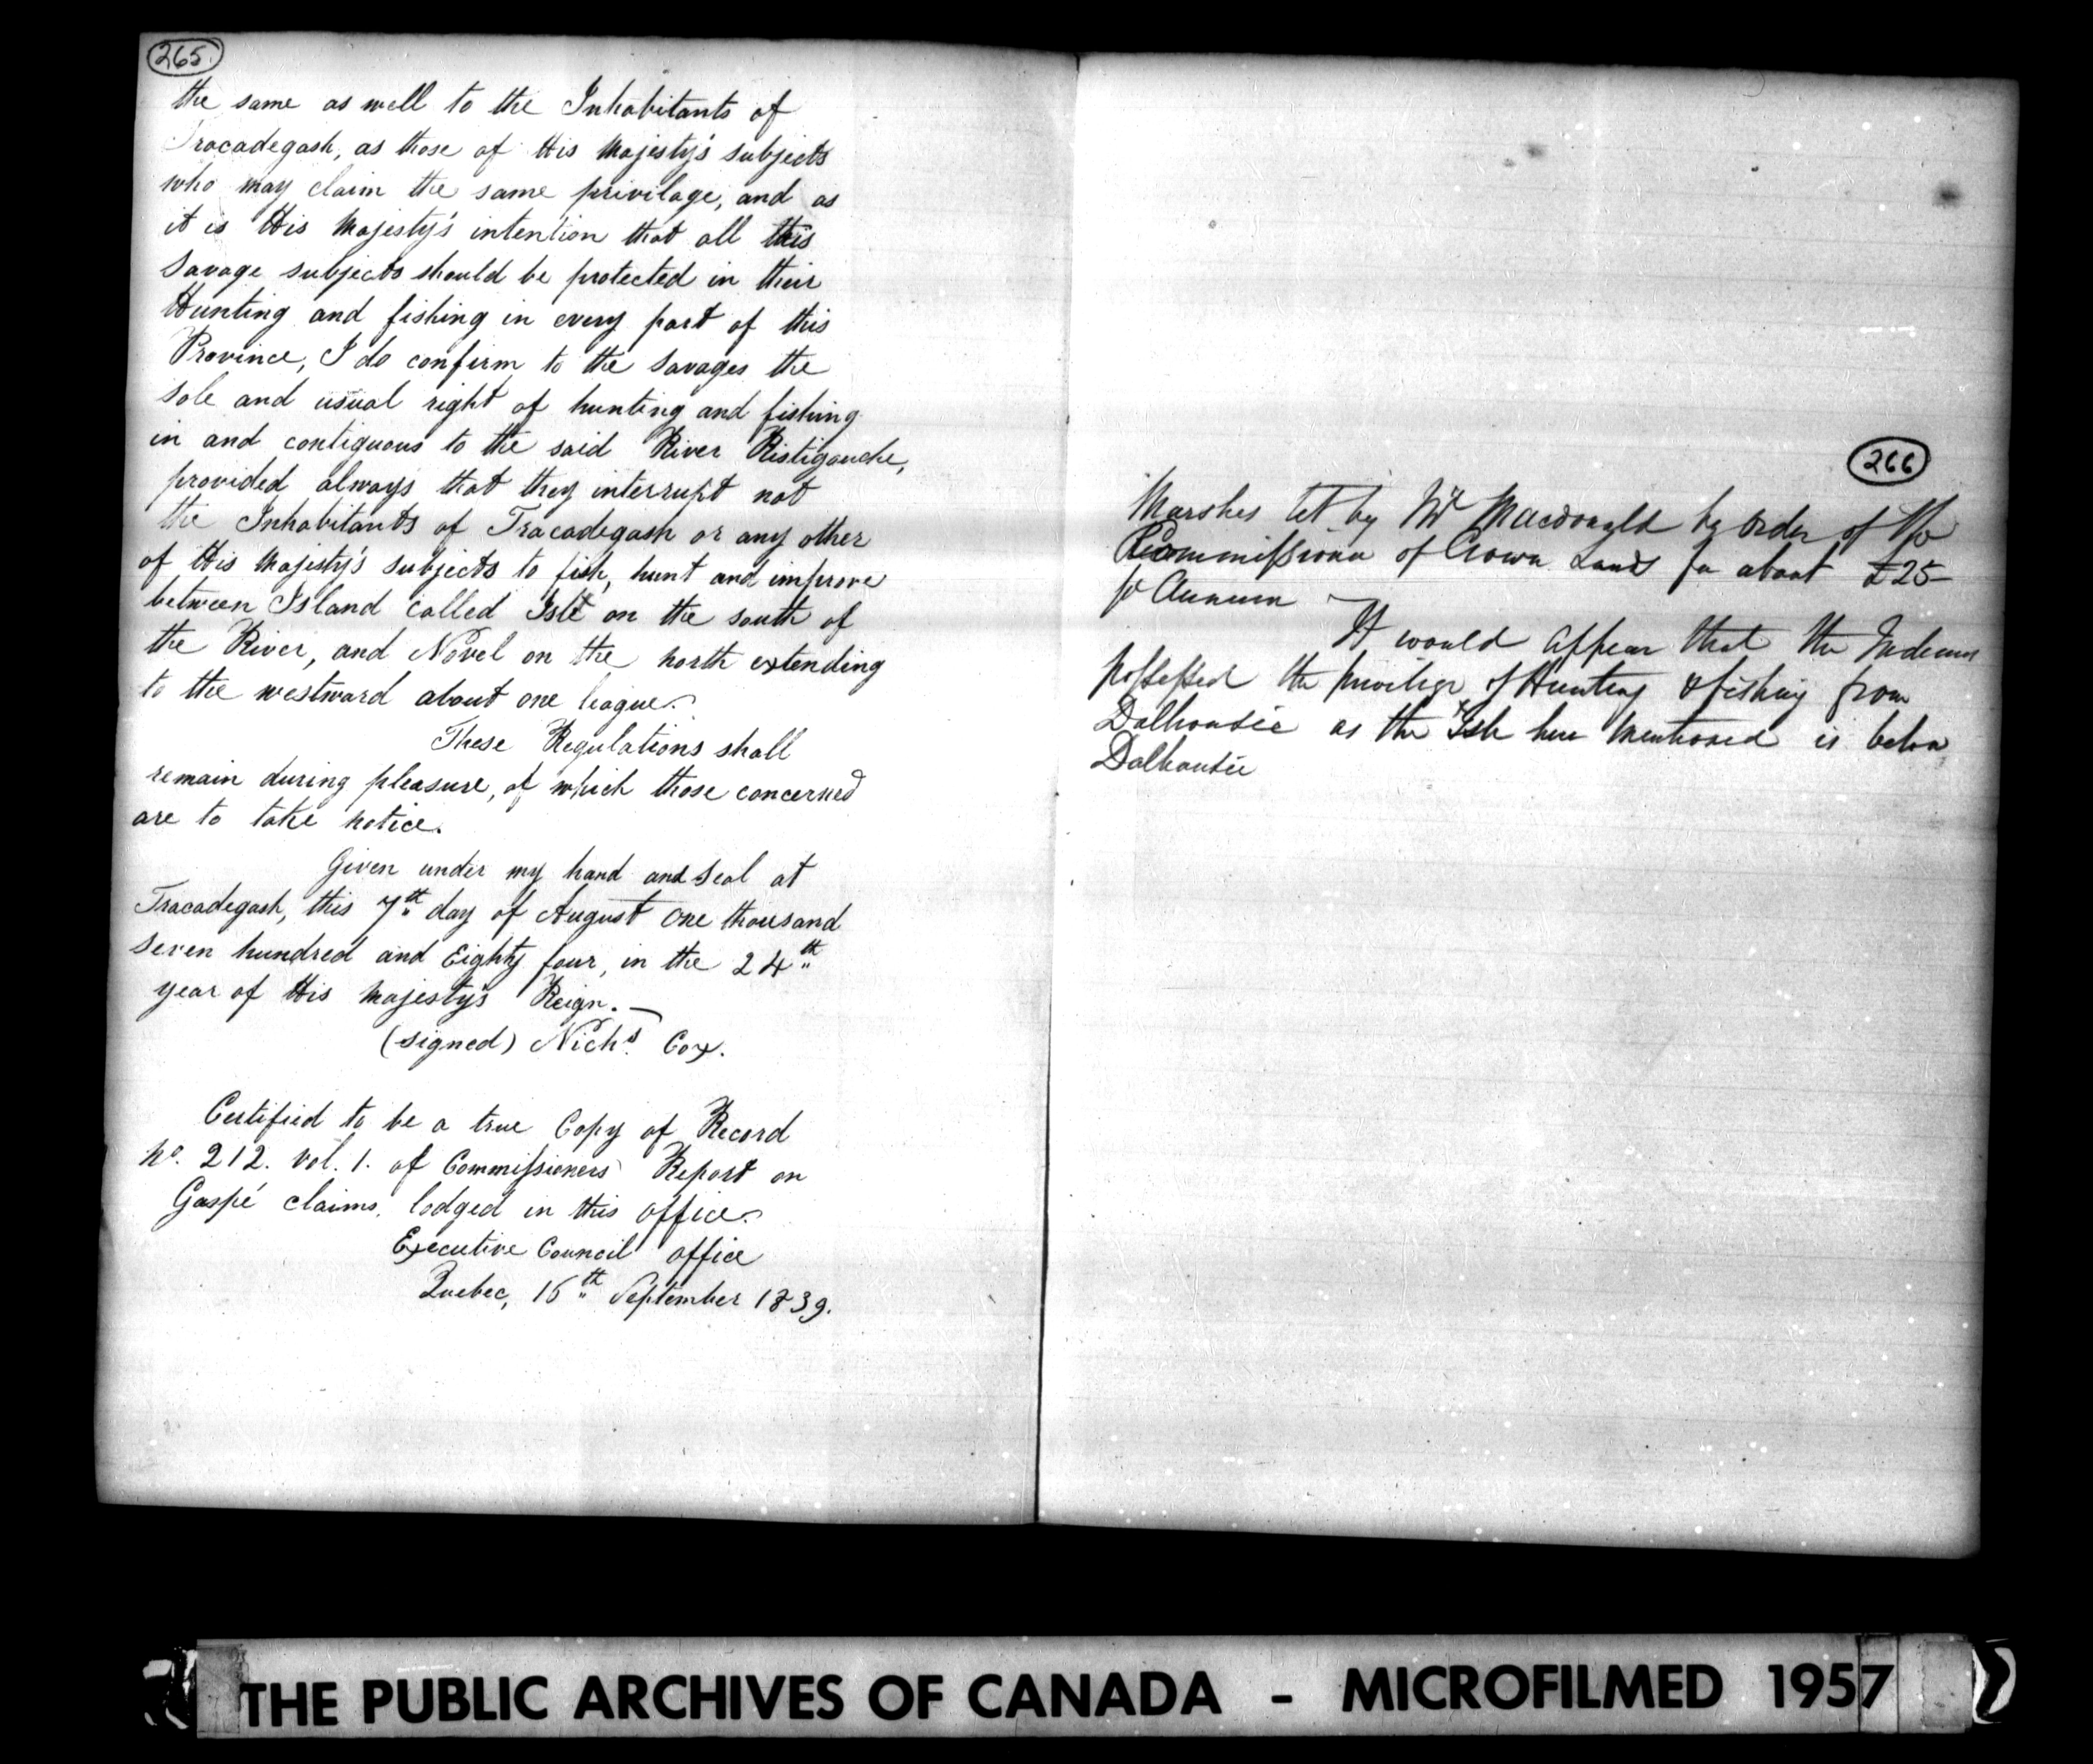 265.
the same as well to the Inhabitants of
Tracadegash, as those of His Majesty's subjects
who may claim the same privilage, and as
it is His Majesty's intention that all this
Savage subjects should be protected in their
Hunting and fishing in every part of this
Province, I do confirm to the Savages the
sole and usual right of hunting and fishing
in and contiguous to the said River Ristigouche,
provided always that they interrupt not
the Inhabitants of Tracadegash or any other
of His Majesty's subjects to fish, hunt and improve
between Island called Isle on the south of
the River, and Novel on the north extending
to the westward about one league.
These Regulations shall
remain during pleasure, of which those concerned
are to take notice.
Given under my hand and Seal at
Tracadegash, this 7th day of August One thousand
seven hundred and Eighty four, in the 24th
year of His Majestys Reign. —
(signed) Nichs. Cox.
Certified to be a true Copy of Record
No. 212. vol. 1. of Commissioners Report on
Gaspé claims, lodged in this office.
Executive Council office
Quebec, 16th September 1839.
266
Marshes let by Mr Macdonald by order of the
Commissioner of Crown Lands for about £25
pr Annum —
It would appear that the Indians
possessed the privilege of Hunting & fishing from
Dalhousie as the Isle here mentioned is below
Dalhousie
THE PUBLIC ARCHIVES OF CANADA - MICROFILMED 1957